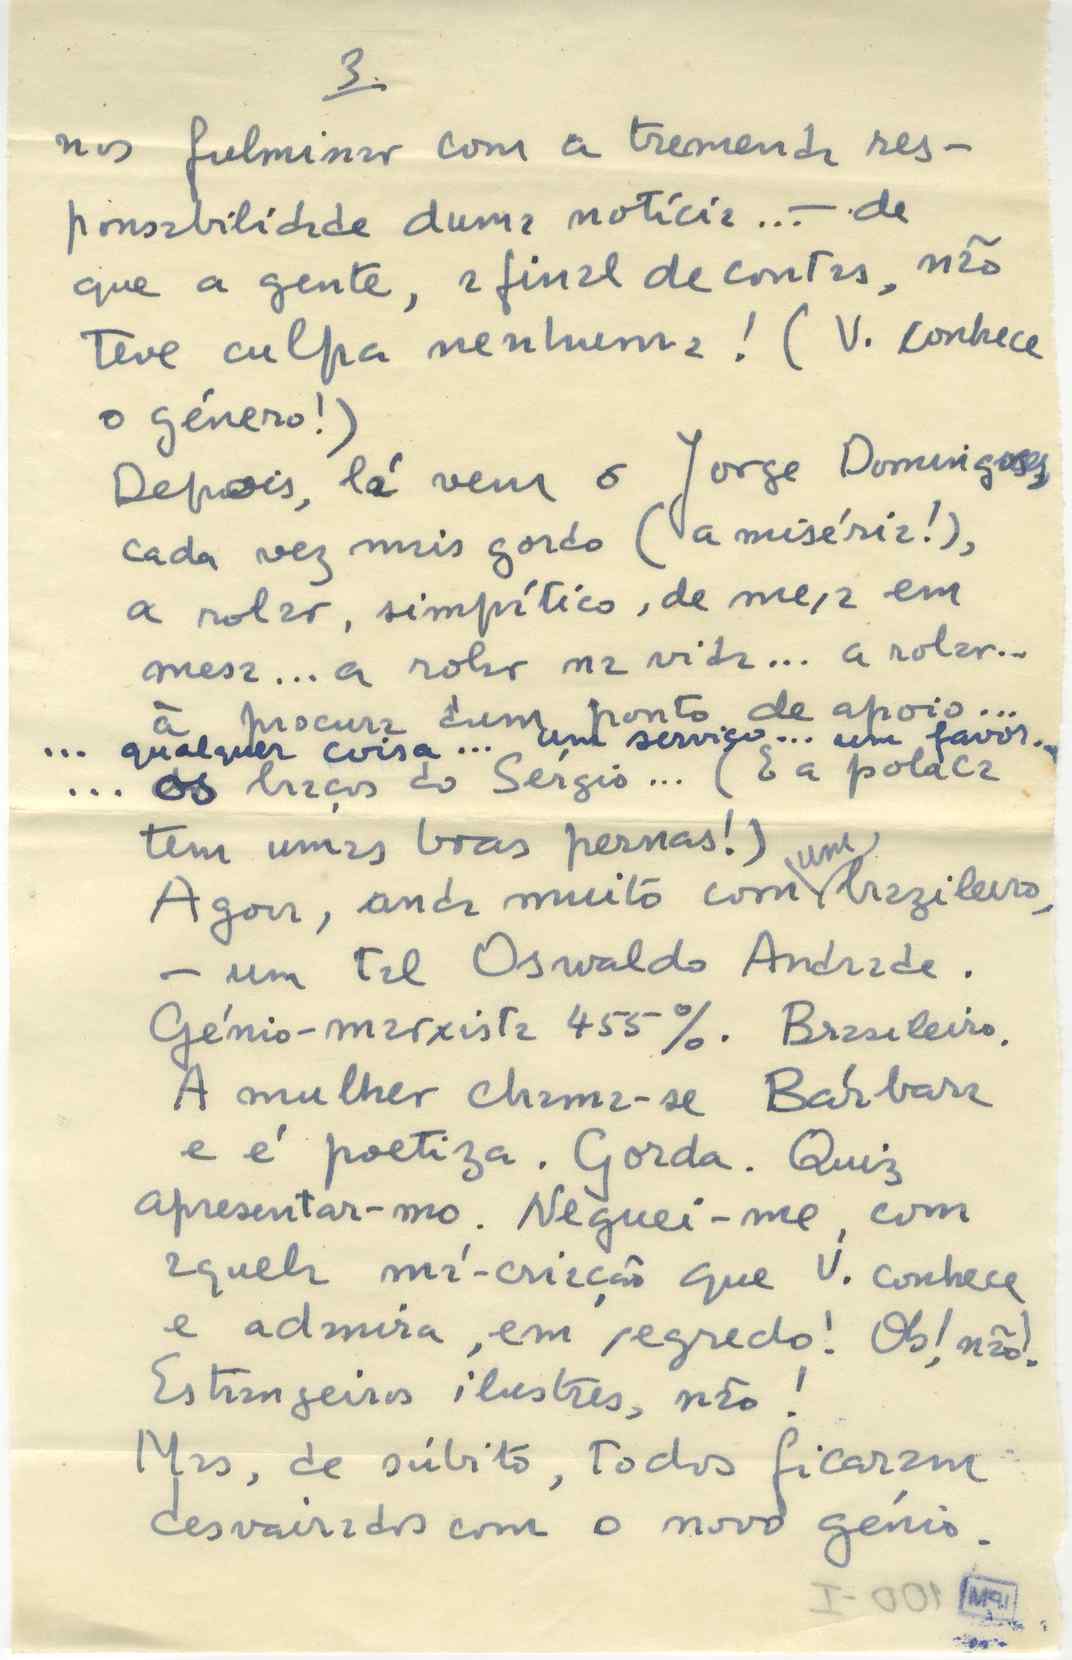 3.
nos fulminar com a tremenda res-
ponsabilidade duma notícia...— de
que a gente, afinal de contas, não
teve culpa nenhuma! (V. conhece
o género!)
Depois, lá vem o Jorge Domingues,
cada vez mais gordo (a miséria!),
a rolar, simpático, de mesa em
mesa... a rolar na vida... a rolar...
à procura dum ponto de apoio...
... qualquer coisa... um serviço... um favor...
... os braços do Sérgio... (E a polaca
tem umas boas pernas!)
Agora, anda muito com um brazileiro,
— um tal Oswaldo Andrade.
Génio-marxista 455%. Brasileiro.
A mulher chama-se Bárbara
e é poetiza. Gorda. Quiz
apresentar-mo. Neguei-me, com
aquela má-criação que V. conhece
e admira, em segredo! Oh! não!
Estrangeiros ilustres, não!
Mas, de súbito, todos ficaram
desvairados com o novo génio.
100-I